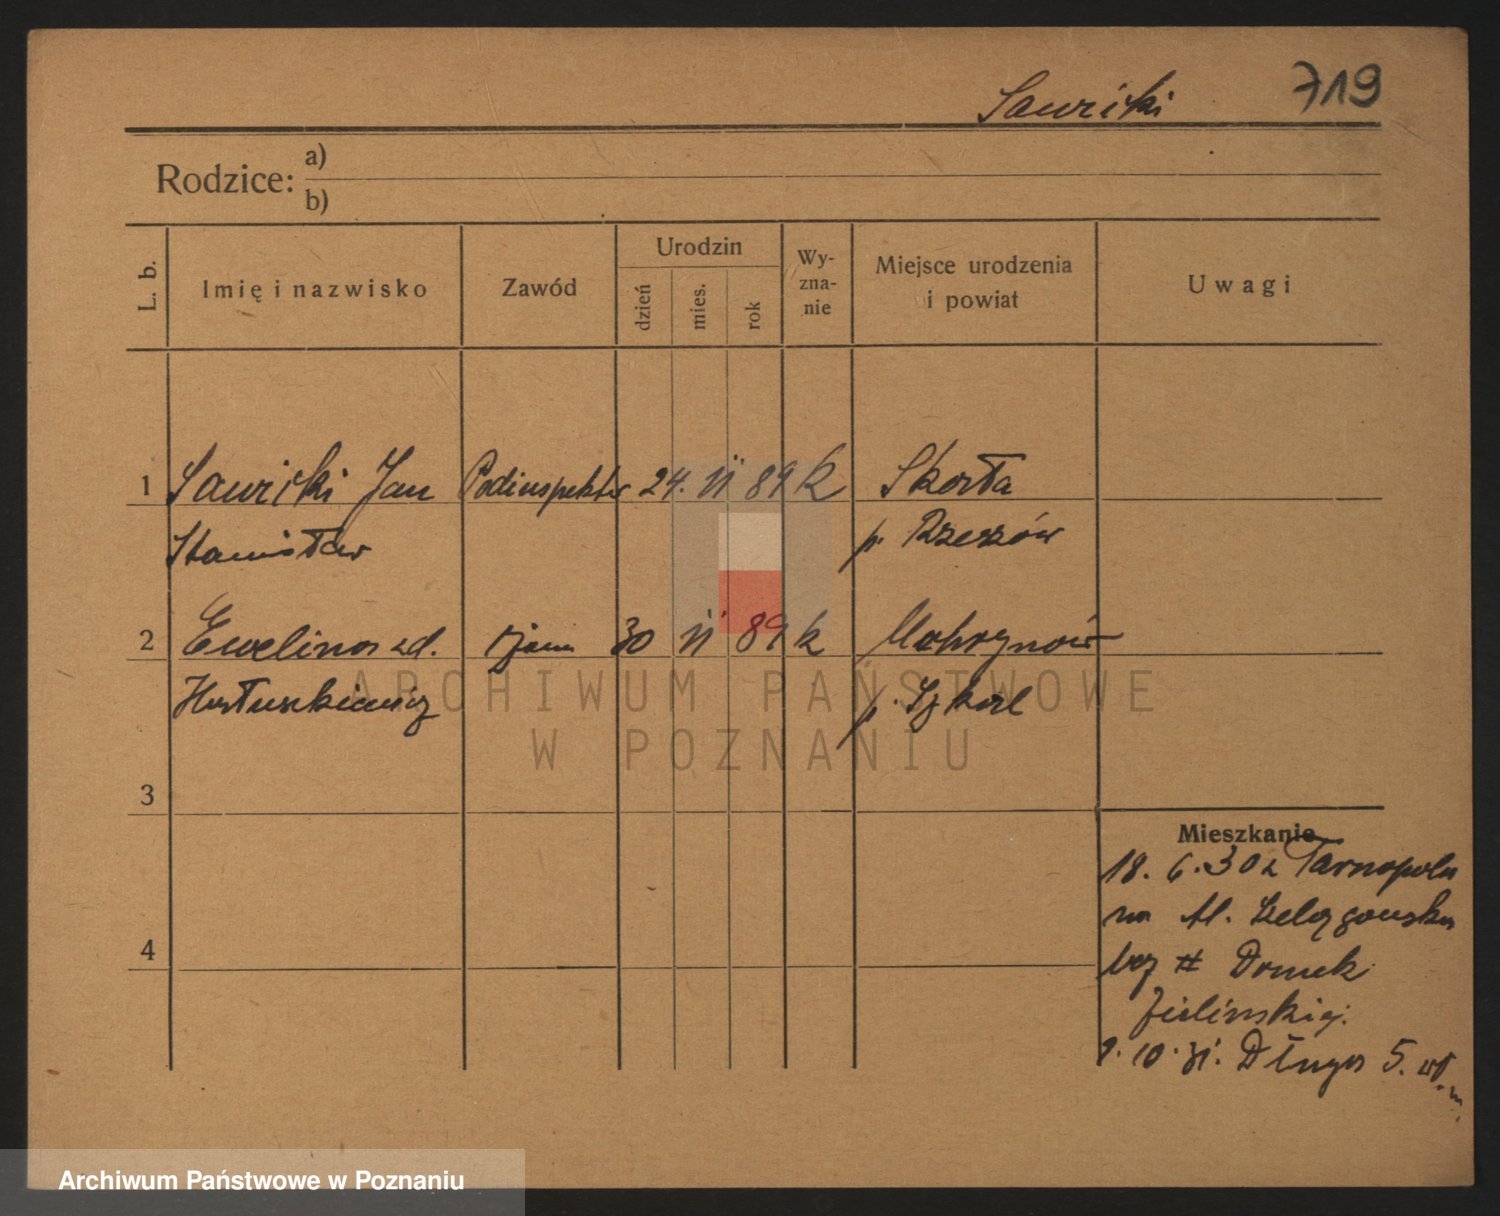 Sawicki 719
Rodzice: a)
b)
L. b. Imię i nazwisko Zawód Urodzin dzień mies. rok Wy-zna-nie Miejsce urodzenia i powiat Uwagi
1 Sawicki Jan Podinspektor 24. VI 89 k Skorła
Stanisław p. Rzeszów
2 Ewelina zd. żona 30 VI 89 k
p.
ARCHIWUM PAŃSTWOWE
W POZNANIU
3
Mieszkanie
18. 6. 30 z Tarnopola
na Al. Szelągowska
4
bez # Domek
Zielińskiej.
1. 10. 31. Długa 5.
Archiwum Państwowe w Poznaniu